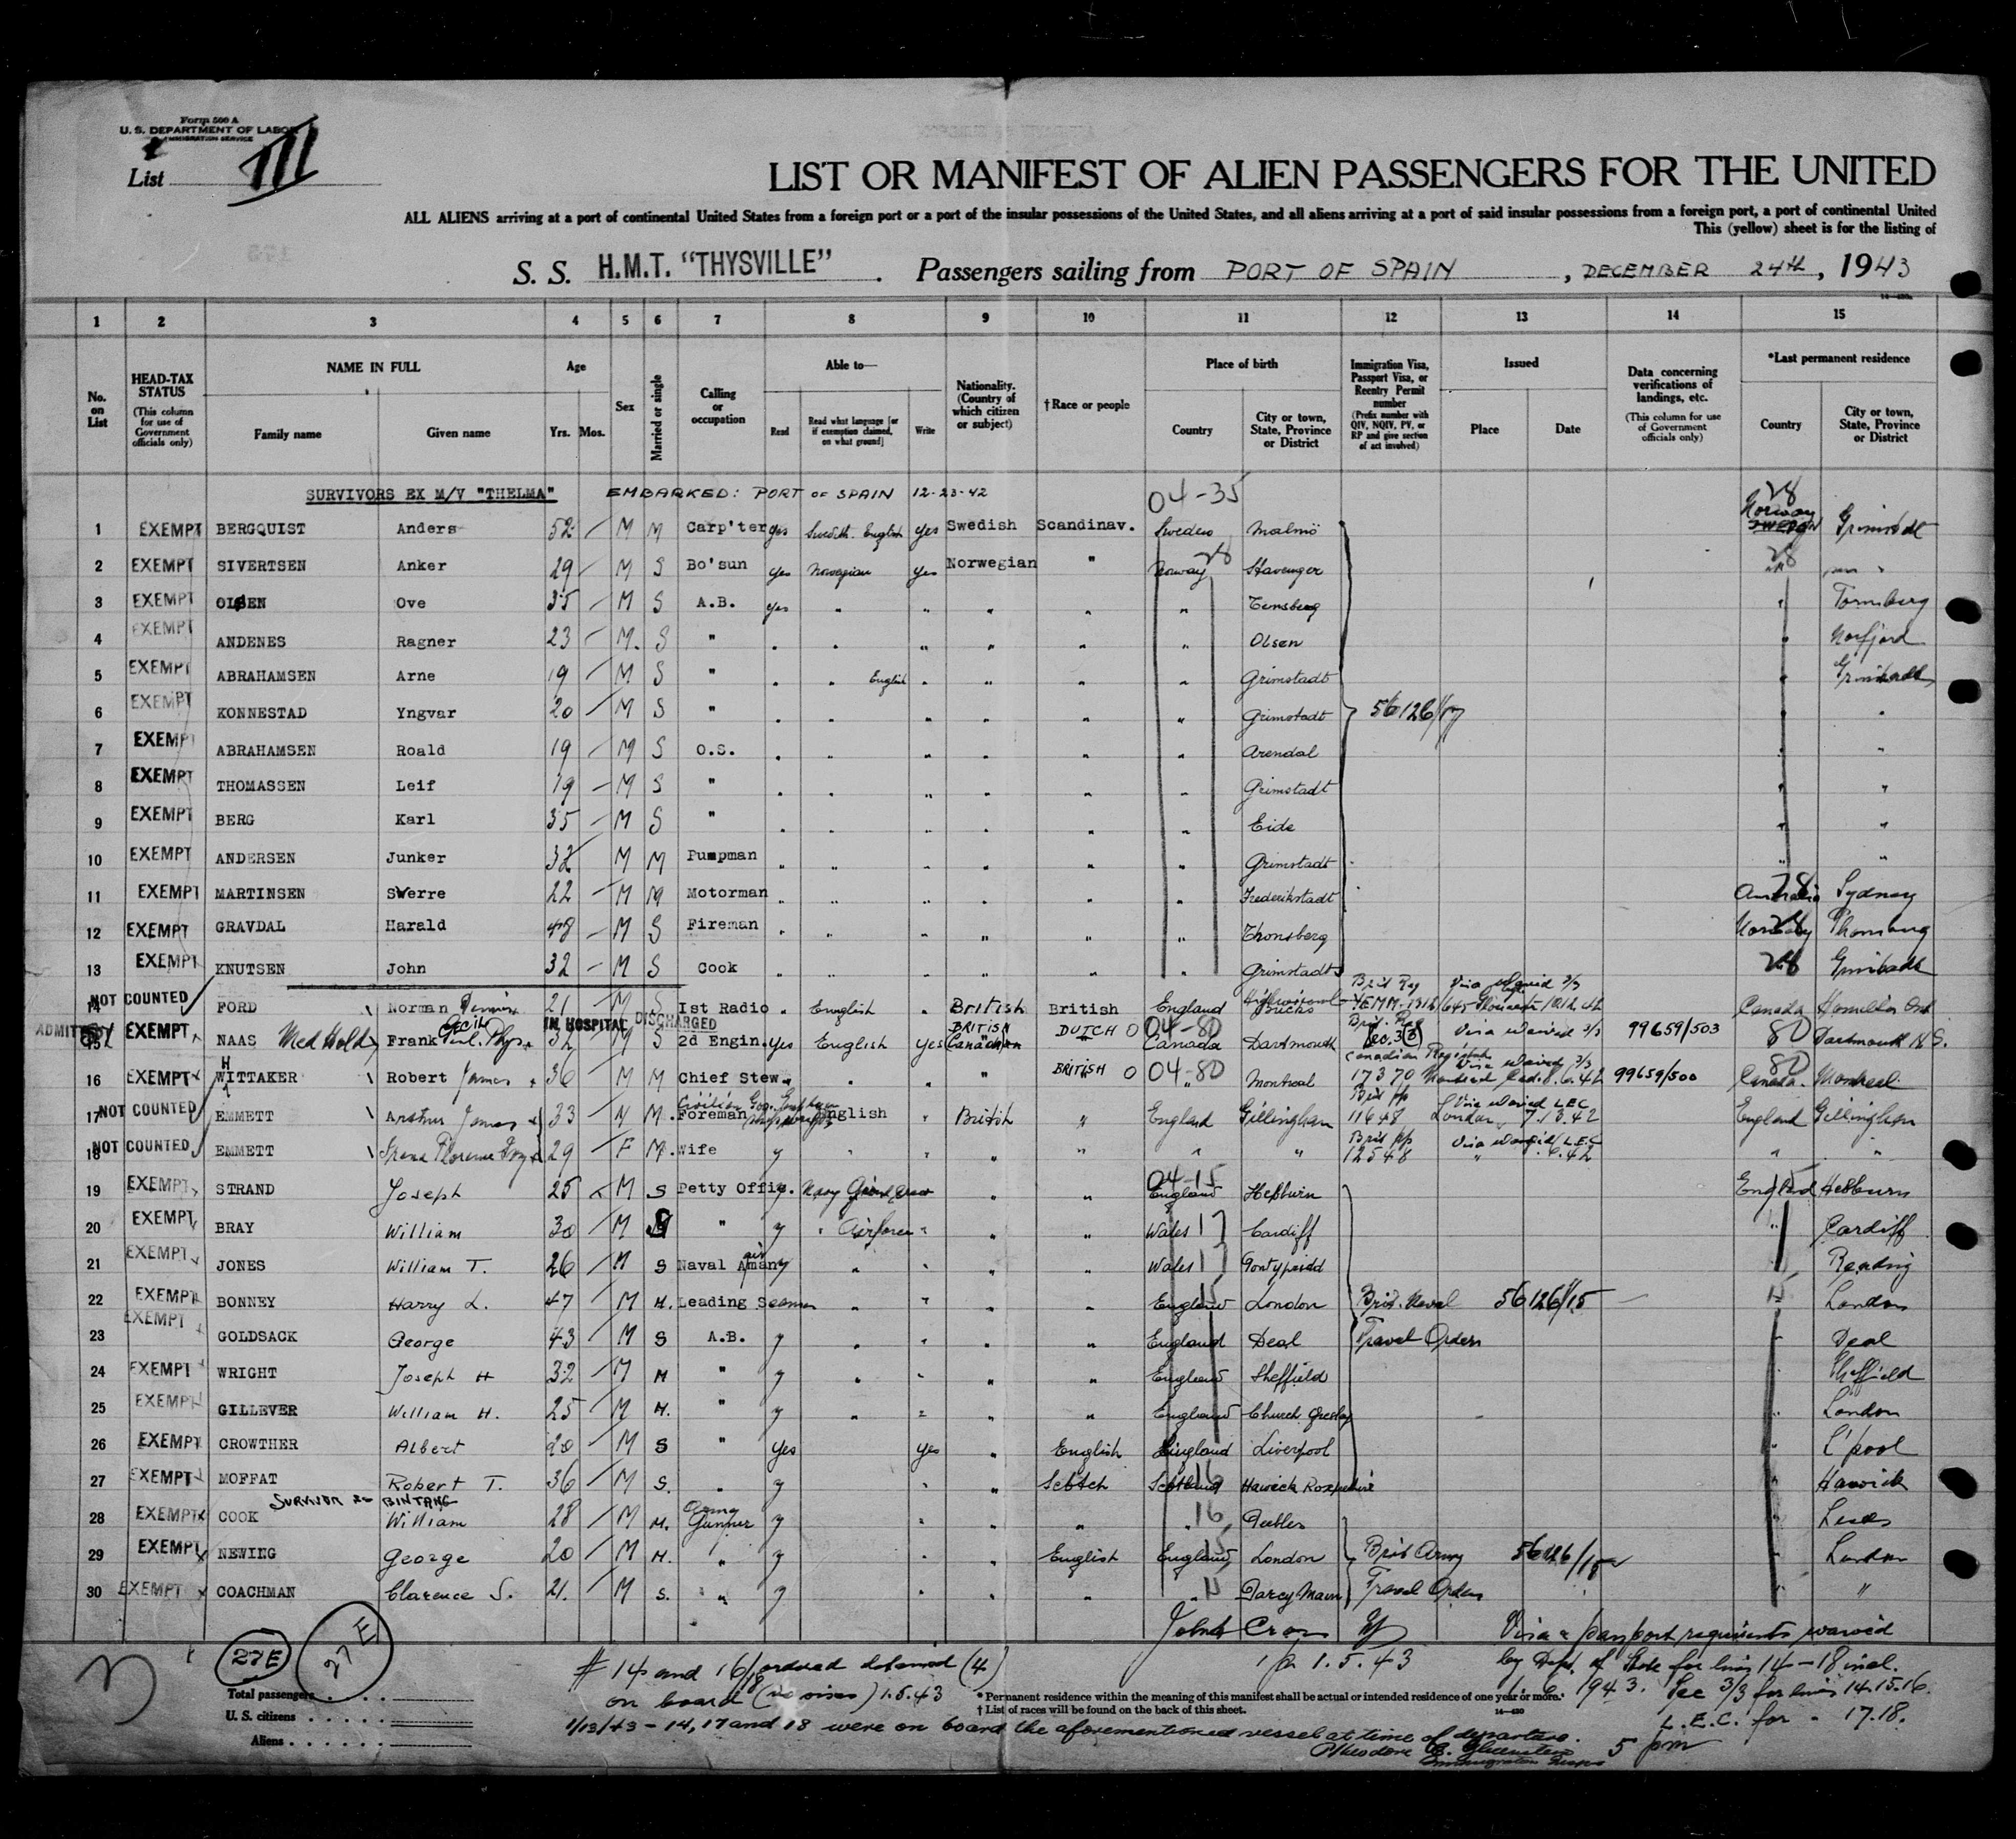 Form 500 A
U. S. DEPARTMENT OF LABOR
IMMIGRATION SERVICE
List III
LIST OR MANIFEST OF ALIEN PASSENGERS FOR THE UNITED
ALL ALIENS arriving at a port of continental United States from a foreign port or a port of the insular possessions of the United States, and all aliens arriving at a port of said insular possessions from a foreign port, a port of continental United
This (yellow) sheet is for the listing of
S. S. H.M.T. "THYSVILLE". Passengers sailing from PORT OF SPAIN, DECEMBER 24th, 1943
1 2 3 4 5 6 7 8 9 10 11 12 13 14 15
No. on List
HEAD-TAX STATUS (This column for use of Government officials only)
NAME IN FULL Family name Given name
Age Yrs. Mos.
Sex
Married or single
Calling or occupation
Able to— Read Read what language [or if exemption claimed, on what ground] Write
Nationality. (Country of which citizen or subject)
† Race or people
Place of birth Country City or town, State, Province or District
Immigration Visa, Passport Visa, or Reentry Permit number (Prefix number with QIV, NQIV, PV, or RP and give section of act involved)
Issued Place Date
Data concerning verifications of landings, etc. (This column for use of Government officials only)
*Last permanent residence Country City or town, State, Province or District
SURVIVORS EX M/V "THELMA" EMBARKED: PORT OF SPAIN 12-23-42 04-35 28
1 EXEMPT BERGQUIST Anders 52 M M Carp'ter yes Swedish English yes Swedish Scandinav. Sweden Malmö Norway SWEDEN Grimstadt
2 EXEMPT SIVERTSEN Anker 29 M S Bo'sun yes Norwegian yes Norwegian " Norway 28 Stavenger 28
3 EXEMPT OLSEN Ove 35 M S A.B. yes " " " " " Tonsberg " Tornsberg
4 EXEMPT ANDENES Ragner 23 M. S " " " " " " " Olsen " Norfjord
5 EXEMPT ABRAHAMSEN Arne 19 M S " " " English " " " " Grimstadt " Grimstadt
6 EXEMPT KONNESTAD Yngvar 20 M S " " " " " " " Grimstadt 56126/17 " "
7 EXEMPT ABRAHAMSEN Roald 19 M S O.S. " " " " " " Arendal " "
8 EXEMPT THOMASSEN Leif 19 M S " " " " " " " Grimstadt " "
9 EXEMPT BERG Karl 35 M S " " " " " " " Eide " "
10 EXEMPT ANDERSEN Junker 32 M M Pumpman " " " " " " Grimstadt " "
11 EXEMPT MARTINSEN Swerre 22 M M Motorman " " " " " " Frederikstadt Australia 28 Sydney
12 EXEMPT GRAVDAL Harald 48 M S Fireman " " " " " " Thonsberg Norway 28 Thonsberg
13 EXEMPT KNUTSEN John 32 M S Cook " " " " " " Grimstadt 28 Grimstadt
14 NOT COUNTED FORD Norman Dennis 21 M S Ist Radio " English " British British England Canada Hamilton Ont
IN HOSPITAL DISCHARGED
15 ADMITTED EXEMPT NAAS Med Hold Frank Cecil 32 M S 2d Engin. yes English yes BRITISH Canadian DUTCH 04-80 Canada Dartmouth Sec. 3(2) Visa waived 3/3 99659/503 80 Dartmouth N.S.
16 EXEMPT WHITTAKER Robert James 36 M M Chief Stew. " " " " BRITISH 04-80 " Montreal Canadian 17370 Montreal Visa waived 3/3 99659/500 80 Canada. Montreal
17 NOT COUNTED EMMETT Arthur James 33 M M. Foreman English " British " England Gillingham Brit pp 11648 Visa waived LEC London 7.13.42 England Gillingham
18 NOT COUNTED EMMETT Florence 29 F M. Wife y " " " " " " Brit pp 12548 Visa waived L.E.C. " " "
19 EXEMPT STRAND Joseph 25 M S Petty Offic. y Navy " " " 04-15 England Hepburn England 15 Hebburn
20 EXEMPT BRAY William 30 M " y " Airforce " " " Wales 17 Cardiff " Cardiff
21 EXEMPT JONES William T. 26 M S Naval Air y " " " " Wales 17 Pontypridd Reading
22 EXEMPT BONNEY Harry L. 47 M M. Leading Seaman " " " " England 15 London Brit. Naval 56126/15 15 London
23 EXEMPT GOLDSACK George 43 M S A.B. y " " " " England Deal Travel Orders " Deal
24 EXEMPT WRIGHT Joseph H 32 M M " y " " " " England Sheffield " Sheffield
25 EXEMPT GILLEVER William H. 25 M M. " y " " " " England Church Gresley " London
26 EXEMPT CROWTHER Albert 20 M S " yes yes " English England Liverpool " L'pool
27 EXEMPT MOFFAT Robert T. 36 M S. " y " " Scotch Scotland 16 Hawick " Hawick
SURVIVOR BINTANG
28 EXEMPT COOK William 28 M M. Army Gunner y " " " " 16 Peebles " Leeds
29 EXEMPT NEWING George 20 M M. " y " " English England 15 London Brit Army 56126/15 " London
30 EXEMPT COACHMAN Clarence S. 21. M S. " y " " " " Darcy Main Travel Orders " "
27E 27E
1.5.43
Visa & passport requirements waived
by Dept. of State for lines 14-18 incl.
1943. Sec 3/3 for lines 14.15.16.
L.E.C. for " 17.18.
5 pm
# 14 and 16/18 ordered detained (4)
on board (no visas) 1.5.43
1/13/43 - 14, 17 and 18 were on board the aforementioned vessel at time of departure.
Total passengers
U. S. citizens
Aliens
* Permanent residence within the meaning of this manifest shall be actual or intended residence of one year or more.
† List of races will be found on the back of this sheet.